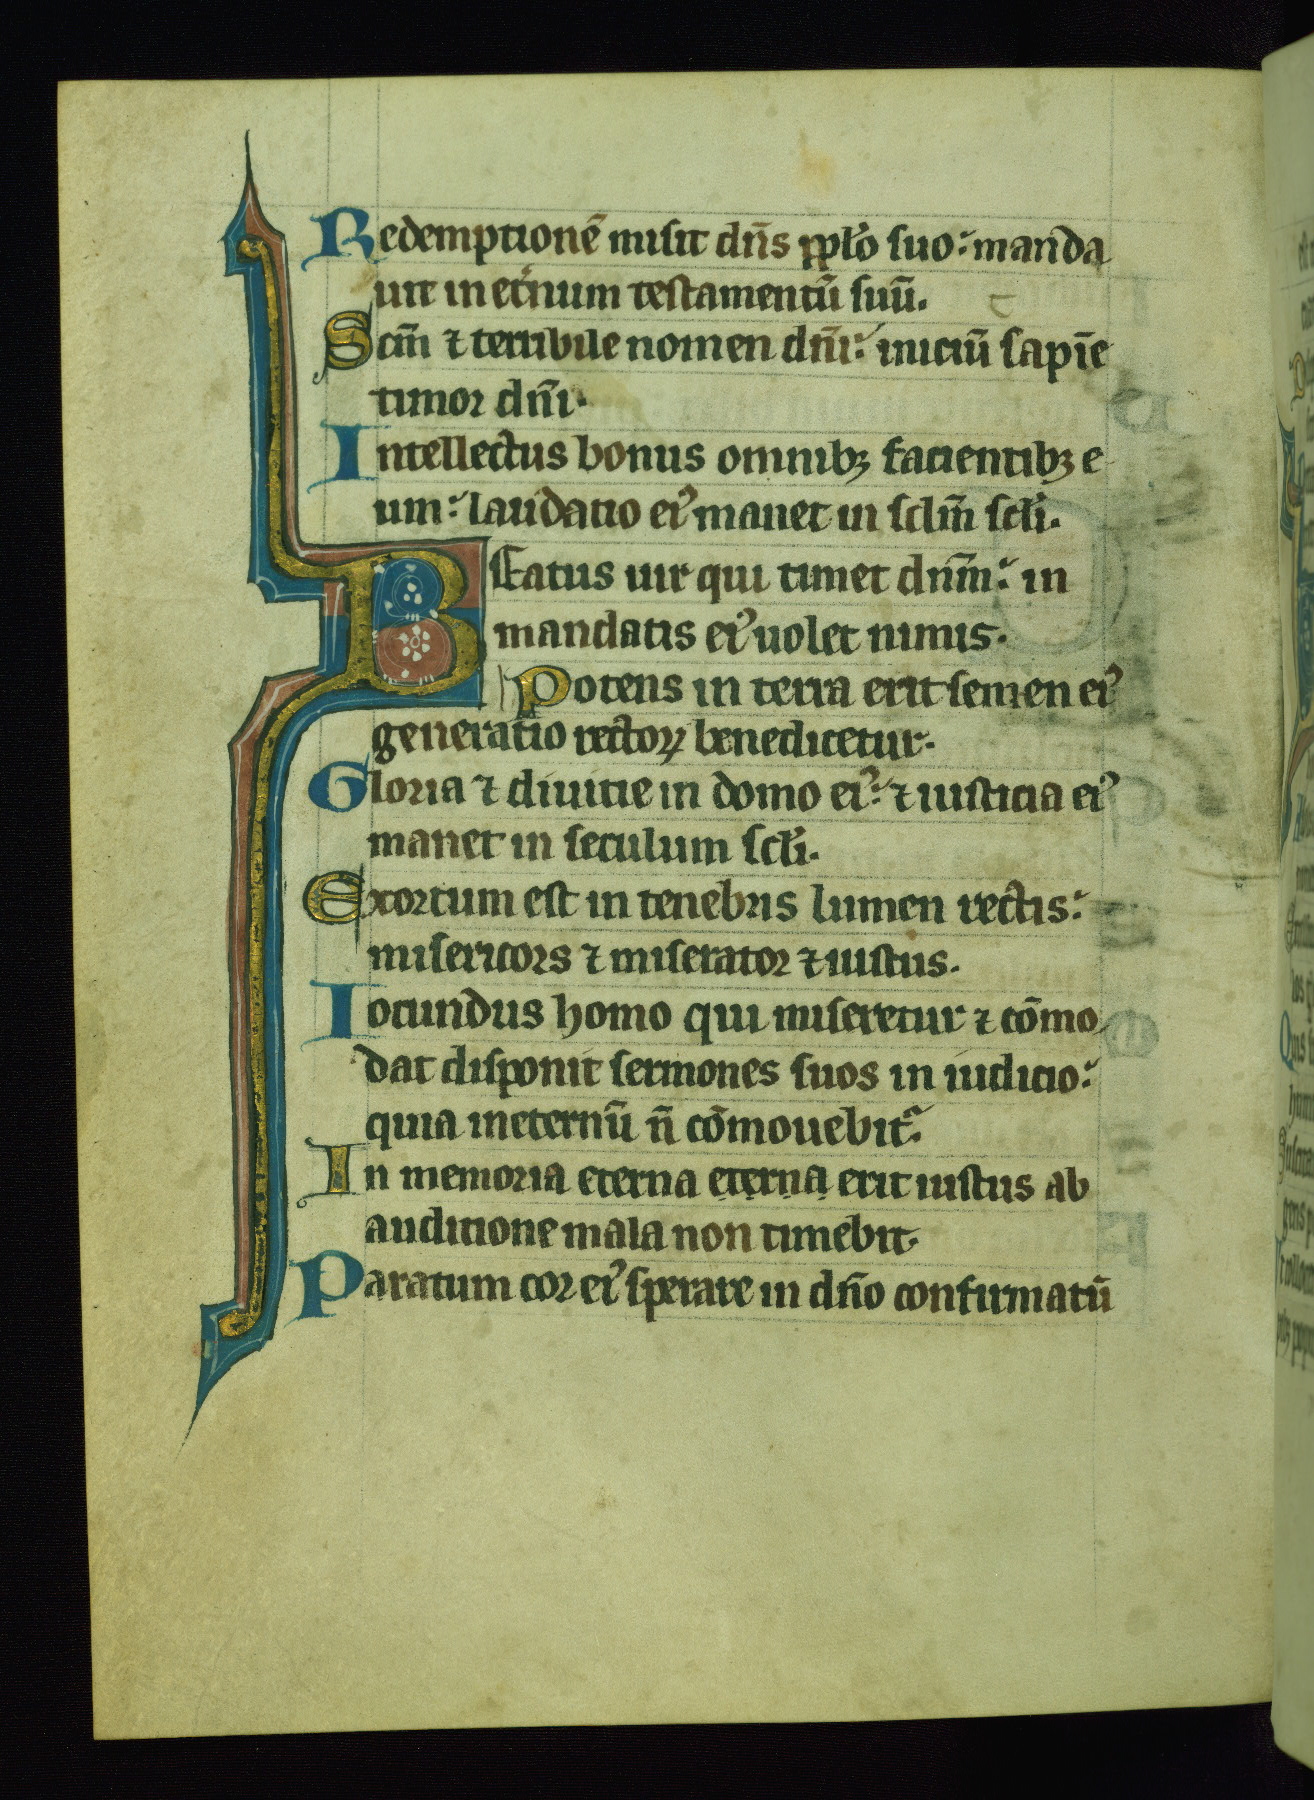 Redemptionē misit dn̄s pp̄lo suo: manda
uit in et̾num testamentū suū.
Scm̄ ⁊ terribile nomen dn̄i: iniciū sapīe
timor dn̄i.
Intellectus bonus omnibꝫ facientibꝫ e
um: laudatio eiꝰ manet in sclm̄ scl̄i.
BEatus uir qui timet dnm̄: in
mandatis eiꝰ uolet nimis.
Potens in terra erit semen eiꝰ
generatio rectoꝝ benedicetur.
Gloria ⁊ diuitie in domo eiꝰ: ⁊ iusticia eiꝰ
manet in seculum scl̄i.
Exortum est in tenebris lumen rectis:
misericors ⁊ miserator ⁊ iustus.
Iocundus homo qui miseretur ⁊ cōmo
dat disponit sermones suos in iudicio:
quia in eternū n̄ cōmouebit᷑.
In memoria eterna eterna erit iustus ab
auditione mala non timebit.
Paratum cor eiꝰ sperare in dn̄o confirmatū